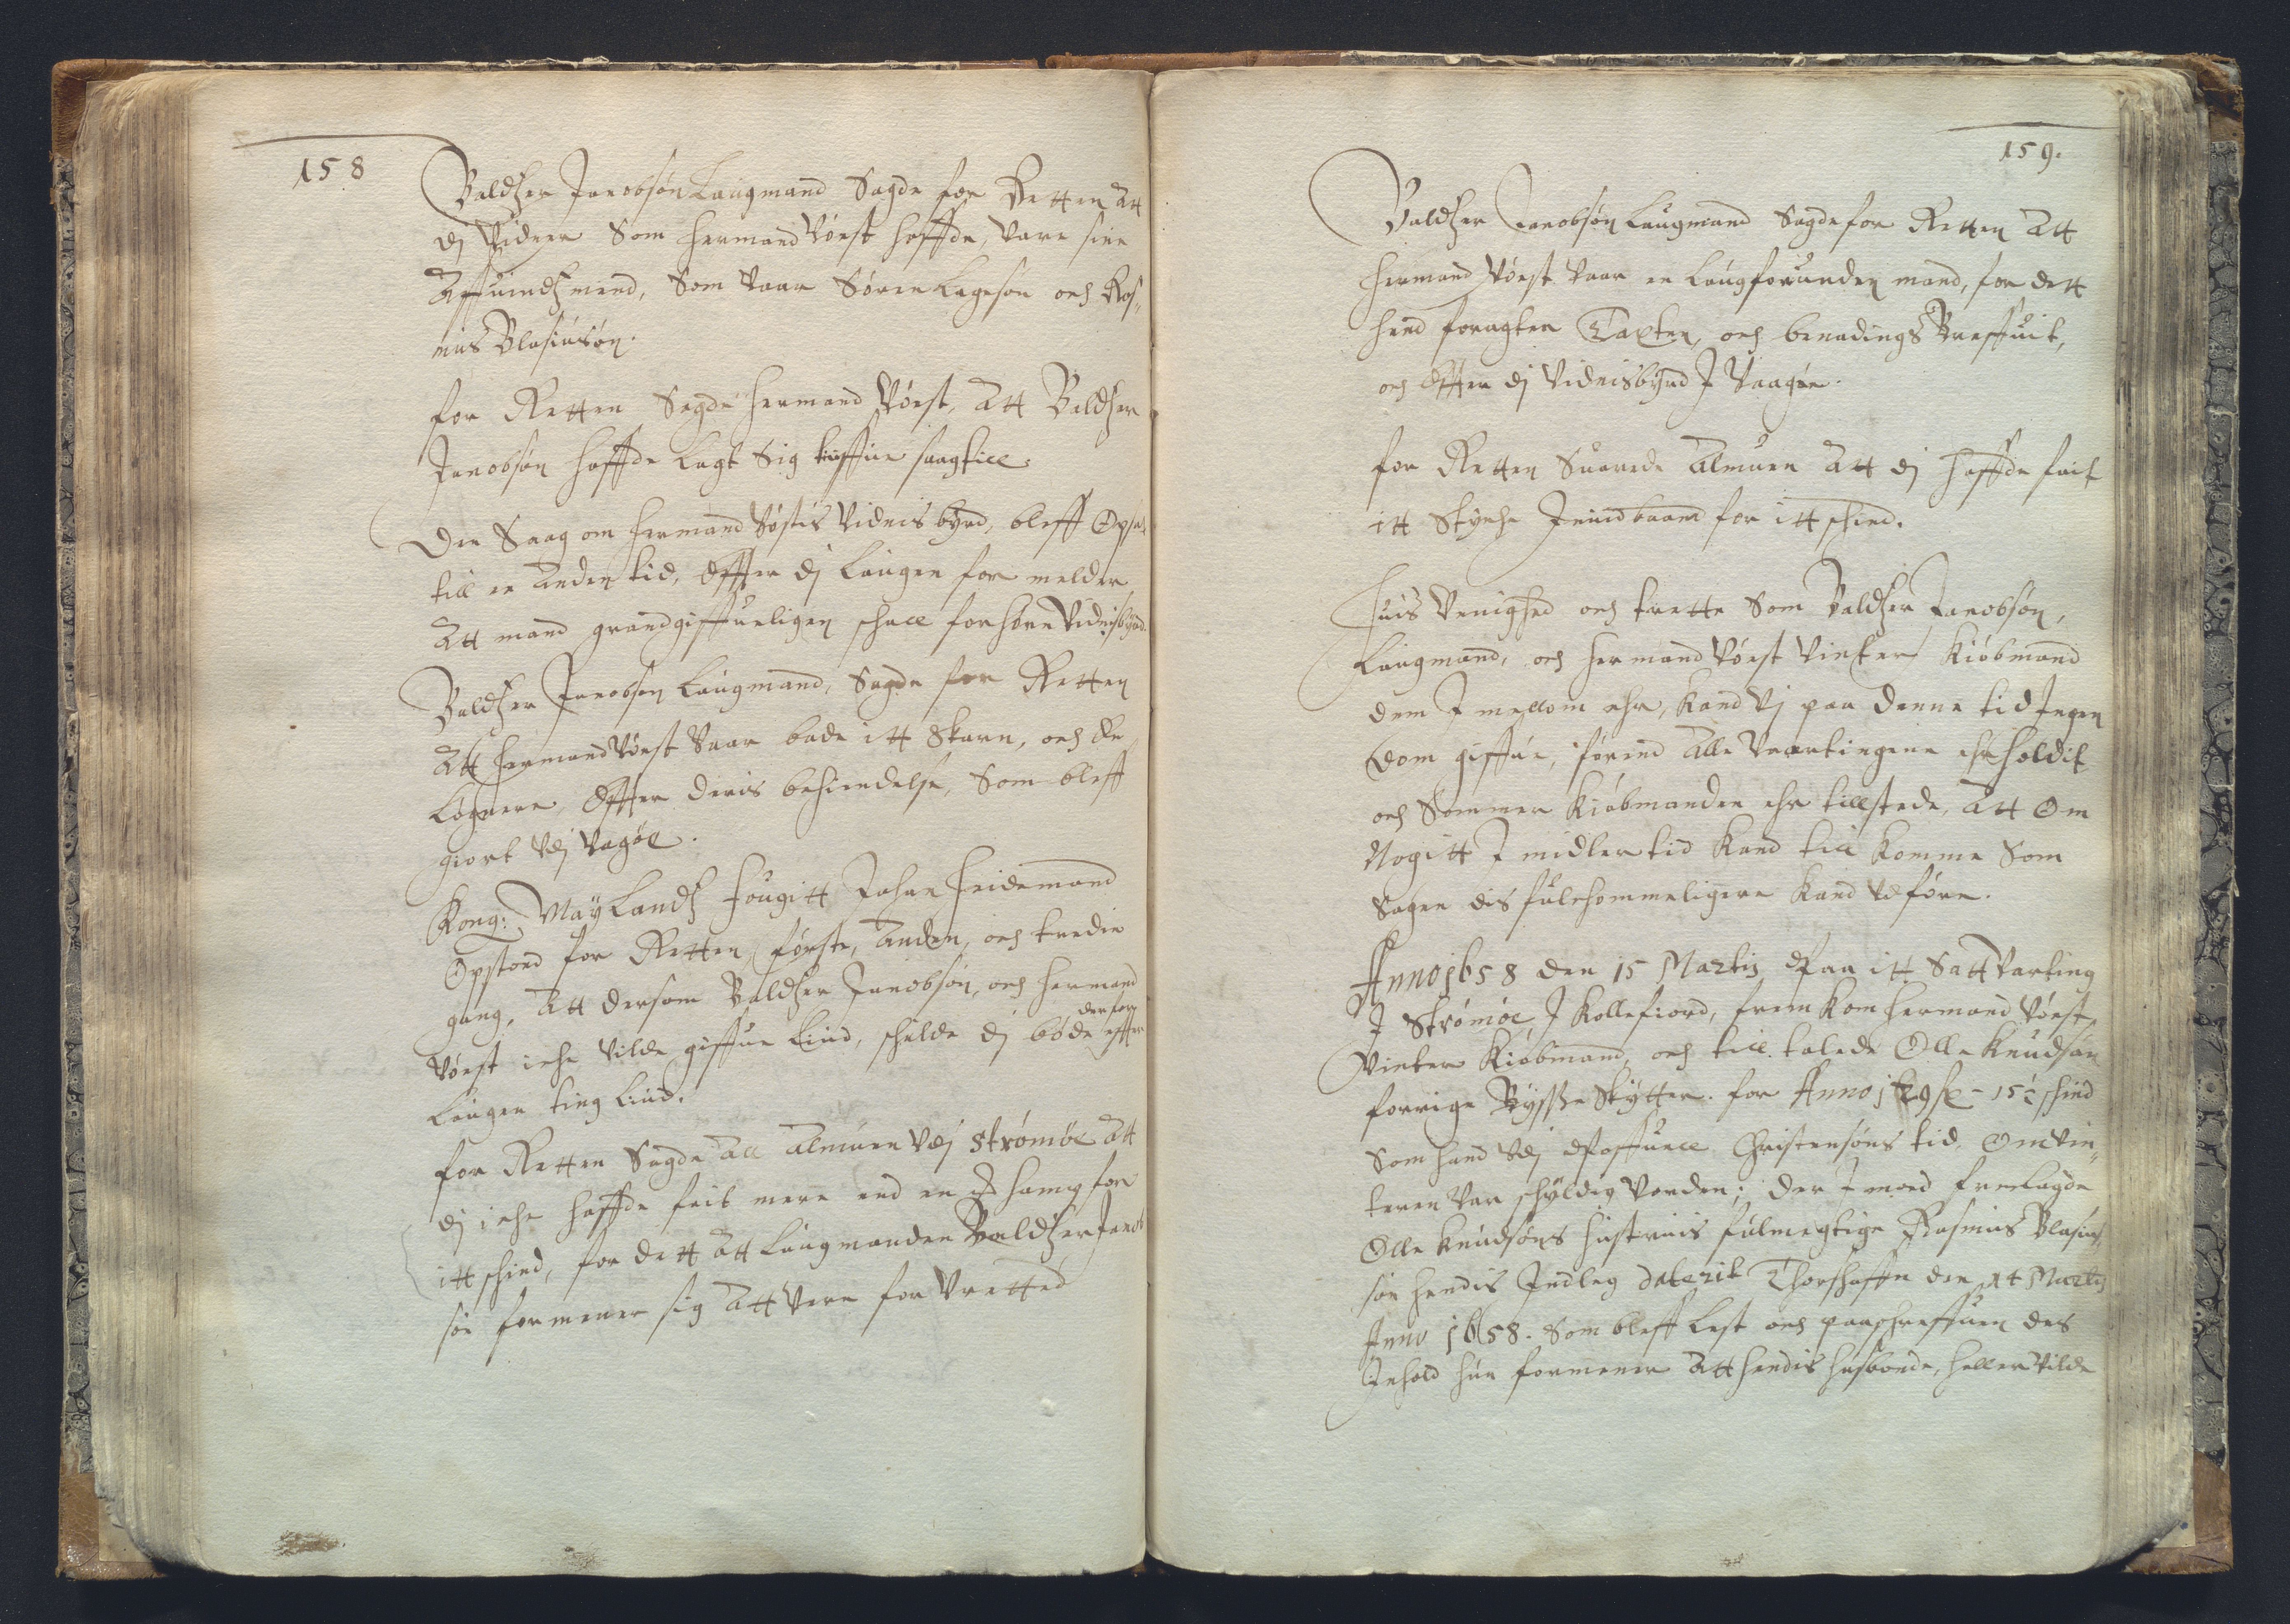 158
Baldzer Jacobsøn Laugmand Sagde for Retten att
dj Vidner Som Hermand Vörst haffde, vare sine
Affuindzmend, Som vaar Søren Lagesøn och Ras„
mus Blasiusøn.
for Retten Sagde Hermand Vörst, att Baldzer
Jacobsøn haffde lagt Sig tiuffue saag till
Den Saag om Hermand Vöstis Vidnisbyrd, bleff Opsat
till en anden tid, effter dj Laugen for melder
att mand grandgiffueligen schall forhøre Vidnisbyrd.
Baldzer Jacobsøn Laugmand, Sagde for Retten
Att Hermand Vörst Vaar bade itt Skarn, och en
Løgnere, effter deris beschendelse, Som bleff
giort vdj Vagöe.
Kong: May Landz fougitt Johan Heidemand
Opstoed for Retten, første, anden, och tredie
gang, att dersom Baldzer Jacobsøn, och Hermand
Vörst iche Vilde giffue liud, schulde dj bøde derfor effter
Laugen ting liud.
for Retten Sagde all almuen vdj Strömöe att
dj iche haffde feit mere end en id hamp for
itt schind, for dett att Laugmanden Baldzer Jacob
søn formener sig att Vere for Vretted
159.
Baldzer Jacobsøn Laugmand Sagde for Retten att
Hermand Vörst Vaar en Laugforvunden mand, for dett
hand foragter Taxten, och benadings Breffuit,
och effter dj Vidnisbyrd J Vaagöe.
for Retten Suarede Almuen att dj haffde feit
itt Styche Jernd baand for itt schind.
Huis Venighed och trette Som Baldzer Jacobsøn,
Laugmand, och Hermand Vörst Vinter Kiøbmand
dem J mellom ehr, kand Vj paa denne tid Jngen
dom giffue, førend alle Vaartingene ehr holdit
och Sommer Kiøbmanden ehr tillstede, att Om
Nogitt J midler tid kand till komme Som
Sagen dis fulchommeligere kand vdføre.
Anno 1658 den 15 Martij Paa itt Satt Varting
J Strömöe J Kollefiord, frem kom Hermand Vörst
Vinter Kiøbmand, och till talede Olle Knudsøn
forrige Bysse Skytter. for Anno 15½ schind
Som hand vdj Poffuell Christensøns tid Om Vin„
teren Var schyldig Vorden; der J moed fremlagde
Olle Knudsøns Hustruis fulmegtige Rasmus Blasius
søn hendis Jndleg daterit Thorshaffn den 14 Martij
Anno 1658. Som bleff lest och paaschreffuen des
Jnhold hun formener att hendis husbonde, heller Vilde